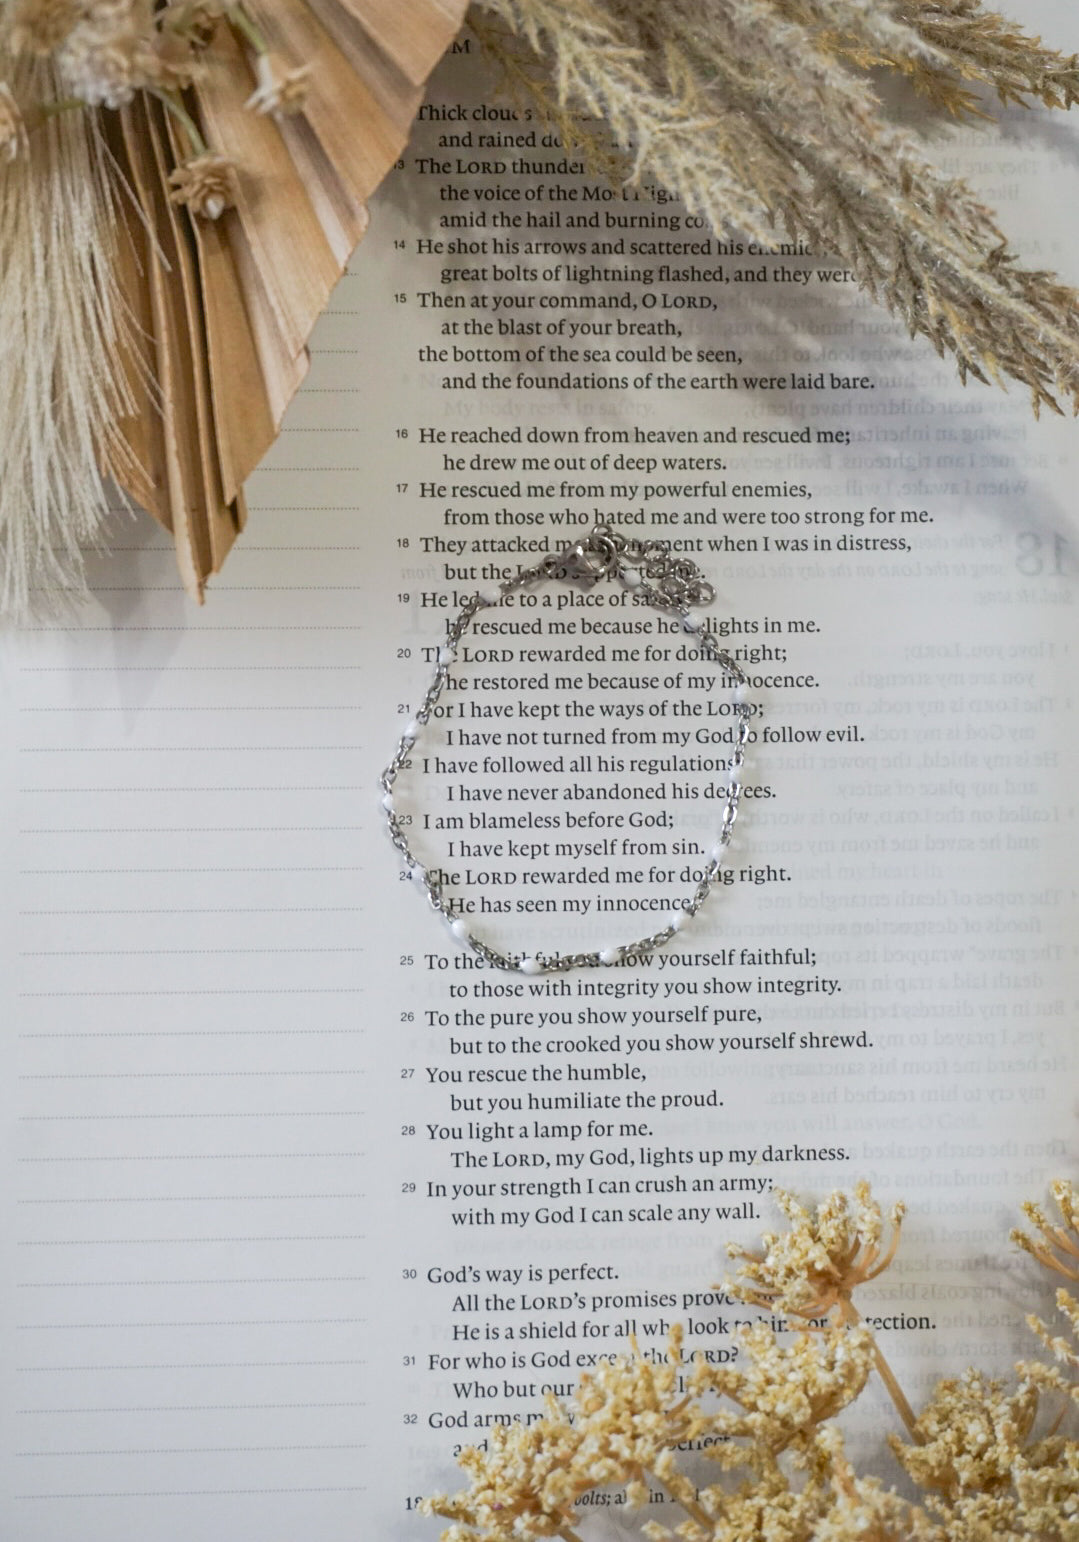 M
Thick clouds
and rained
13 The LORD
the voice of the
amid the hail and burning
14 He shot his arrows and scattered his
great bolts of lightning flashed, and they were
15 Then at your command, O LORD,
at the blast of your breath,
the bottom of the sea could be seen,
and the foundations of the earth were laid bare.
16 He reached down from heaven and rescued me;
he drew me out of deep waters.
17 He rescued me from my powerful enemies,
from those who hated me and were too strong for me.
18 They attacked me at a moment when I was in distress,
but the LORD supported me.
19 He led me to a place of
he rescued me because he delights in me.
20 The LORD rewarded me for doing right;
he restored me because of my innocence.
21 For I have kept the ways of the LORD;
I have not turned from my God to follow evil.
22 I have followed all his regulations;
I have never abandoned his decrees.
23 I am blameless before God;
I have kept myself from sin.
24 The LORD rewarded me for doing right.
He has seen my innocence.
25 To the faithful you show yourself faithful;
to those with integrity you show integrity.
26 To the pure you show yourself pure,
but to the crooked you show yourself shrewd.
27 You rescue the humble,
but you humiliate the proud.
28 You light a lamp for me.
The LORD, my God, lights up my darkness.
29 In your strength I can crush an army;
with my God I can scale any wall.
30 God's way is perfect.
All the LORD's promises prove
He is a shield for all who look to him for protection.
31 For who is God except the LORD?
Who but our
32 God arms
and perfect
in